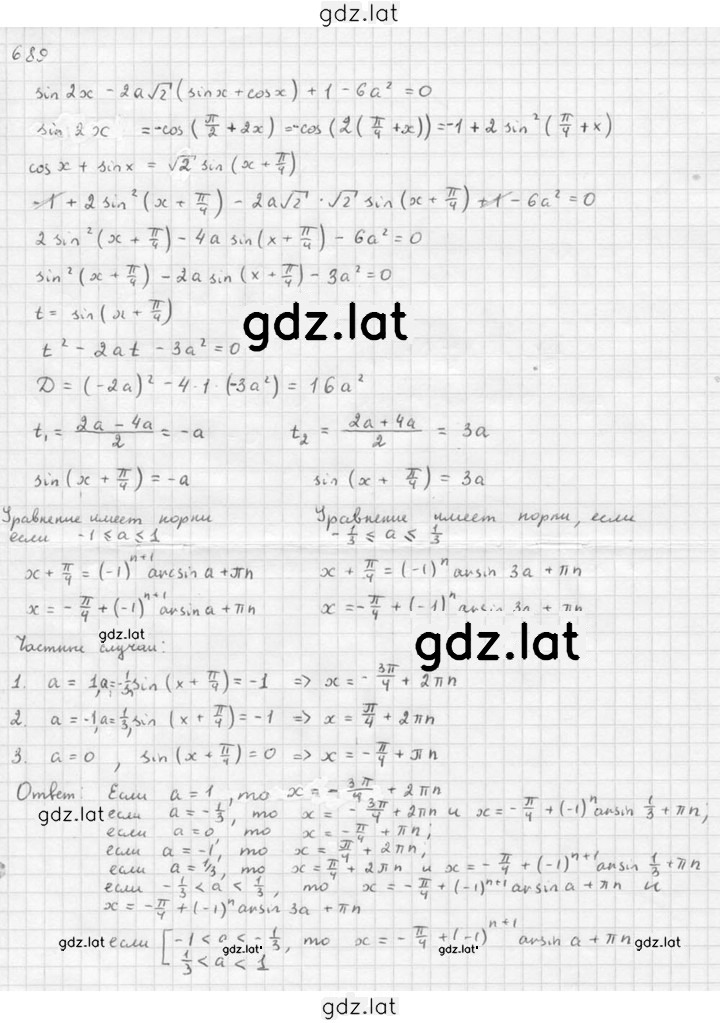 gdz.lat
689
sin 2x - 2a√2 (sinx + cosx) + 1 - 6a² = 0
sin 2x = -cos(π/2 + 2x) = -cos(2(π/4 + x)) = -1 + 2 sin²(π/4 + x)
cos x + sin x = √2 sin(x + π/4)
-1 + 2 sin²(x + π/4) - 2a√2 · √2 sin(x + π/4) + 1 - 6a² = 0
2 sin²(x + π/4) - 4a sin(x + π/4) - 6a² = 0
sin²(x + π/4) - 2a sin(x + π/4) - 3a² = 0
t = sin(x + π/4)
gdz.lat
t² - 2at - 3a² = 0
D = (-2a)² - 4·1·(-3a²) = 16a²
t₁ = (2a - 4a)/2 = -a t₂ = (2a + 4a)/2 = 3a
sin(x + π/4) = -a sin(x + π/4) = 3a
Уравнение имеет корни Уравнение имеет корни, если
если -1 ≤ a ≤ 1 -1/3 ≤ a ≤ 1/3
x + π/4 = (-1)ⁿ⁺¹ arcsin a + πn x + π/4 = (-1)ⁿ arsin 3a + πn
x = -π/4 + (-1)ⁿ⁺¹ arsin a + πn x = -π/4 + (-1)ⁿ arsin 3a + πn
gdz.lat
Частные случаи:
gdz.lat
1. a = 1, a = -1/3, sin(x + π/4) = -1 => x = -3π/4 + 2πn
2. a = -1, a = 1/3, sin(x + π/4) = -1 => x = π/4 + 2πn
3. a = 0, sin(x + π/4) = 0 => x = -π/4 + πn
Ответ: Если a = 1, то x = -3π/4 + 2πn
gdz.lat
если a = -1/3, то x = -3π/4 + 2πn и x = -π/4 + (-1)ⁿ arsin 1/3 + πn;
если a = 0, то x = -π/4 + πn;
если a = -1, то x = π/4 + 2πn;
gdz.lat
если a = 1/3, то x = π/4 + 2πn и x = -π/4 + (-1)ⁿ⁺¹ arsin 1/3 + πn
если -1/3 < a < 1/3, то x = -π/4 + (-1)ⁿ⁺¹ arsin a + πn и
x = -π/4 + (-1)ⁿ arsin 3a + πn
если [ -1 < a < -1/3, то x = -π/4 + (-1)ⁿ⁺¹ arsin a + πn
1/3 < a < 1
gdz.lat gdz.lat gdz.lat gdz.lat
gdz.lat